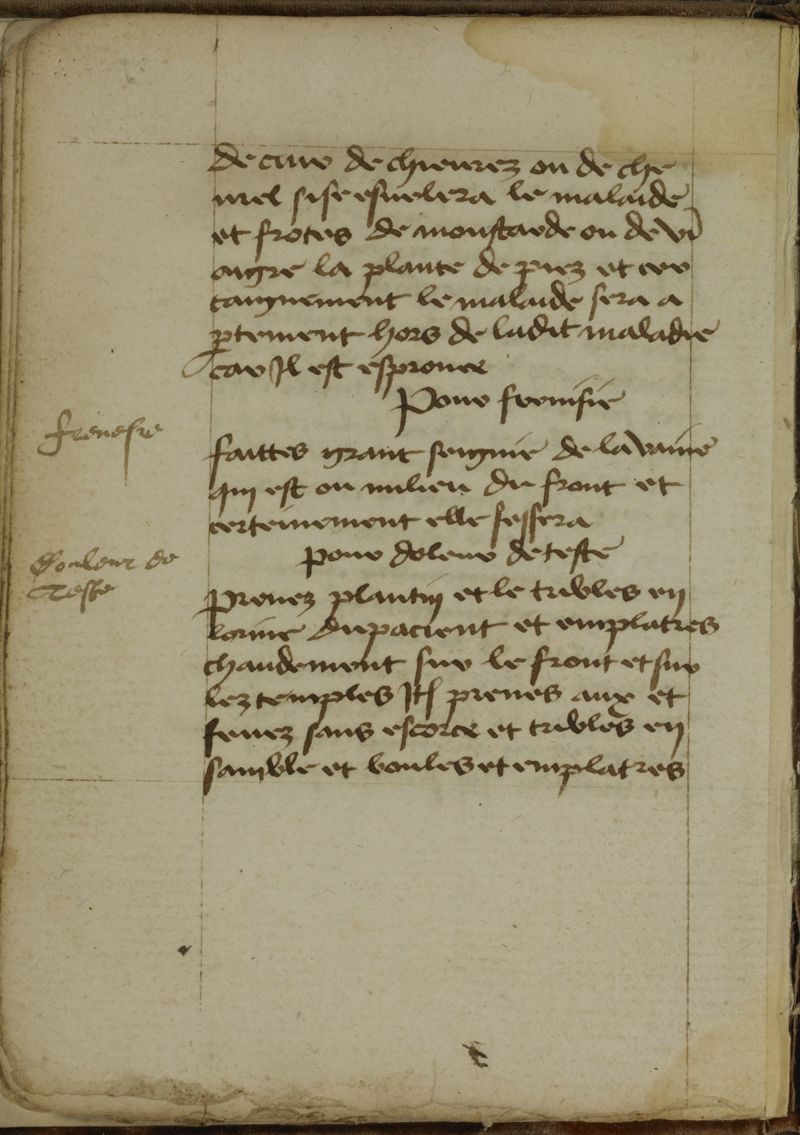 de cuir de chieurez ou de che
urel si se esuelera le malaide
et frotes de moustarde ou de vi
aigre la plante de piez et cer
taignement le malaide sera a
ptement hors de ladit maladie
car Il est esprouue
Pour frenisie
frenesie
faittes grant seignie de la vaine
qui est ou milieu du front et
certeinement elle sessera
pour doleur de teste
Douleur de
Teste
Prenez plantin et le tribles en
lorine du pacient et emplatres
chaudement sur le front et sur
lez temples Itm prenes aux et
feuez sans escorce et tribles en
samble et boules et emplatres